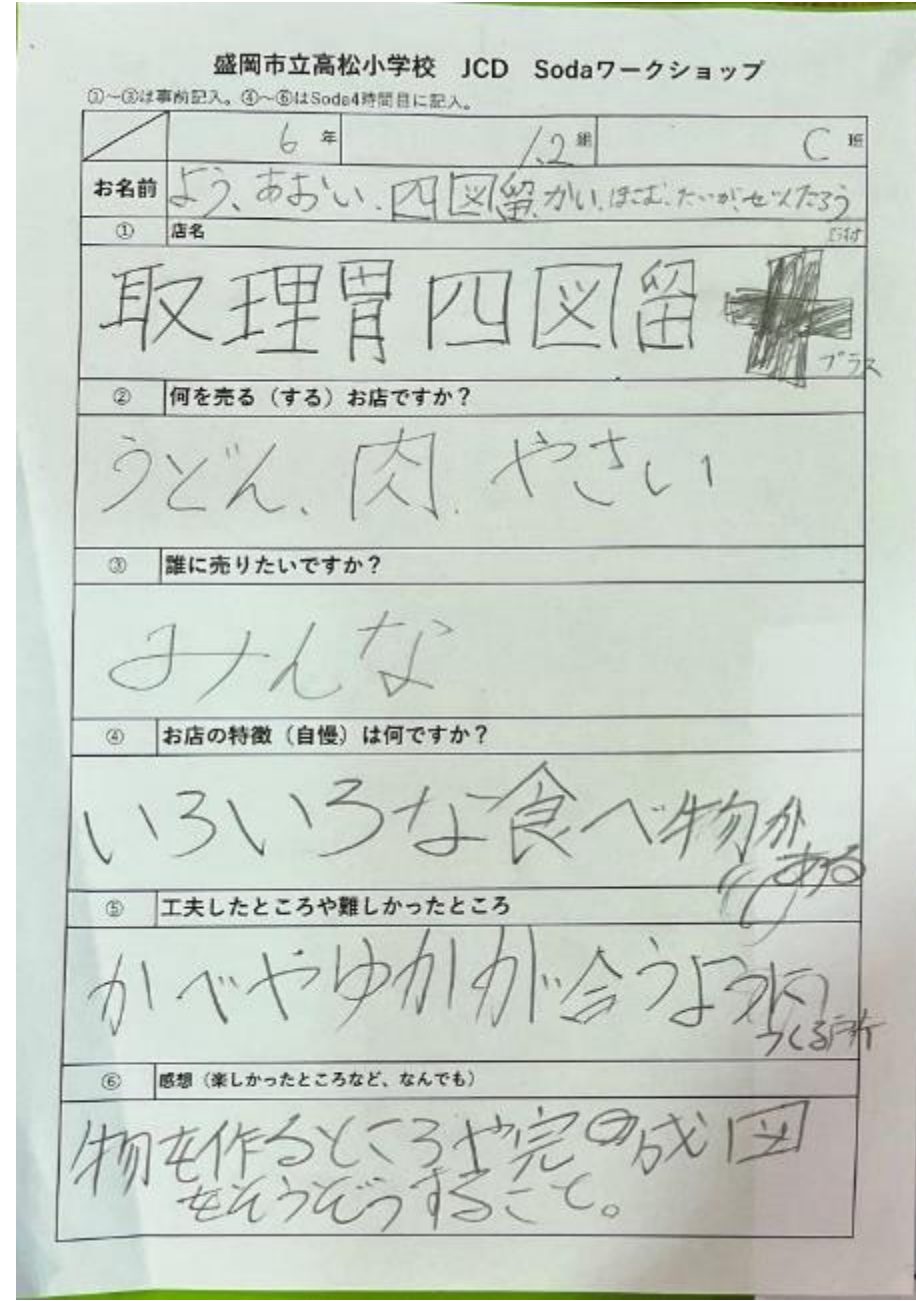 盛岡市立高松小学校 JCD Sodaワークショップ
①~③は事前記入。④~⑥はSoda4時間目に記入。
6 年 1.2 組 C 班
お名前 よう、あおい、四図留、かい、ほだか、たいが、
① 店名
取理胃四図留
プラス
② 何を売る(する)お店ですか?
うどん、肉、やさい
③ 誰に売りたいですか?
みんな
④ お店の特徴(自慢)は何ですか?
いろいろな食べ物が
ある
⑤ 工夫したところや難しかったところ
かべやゆかが合うように
つくる所
⑥ 感想(楽しかったところなど、なんでも)
物を作るところや完成図
をそうぞうすること。